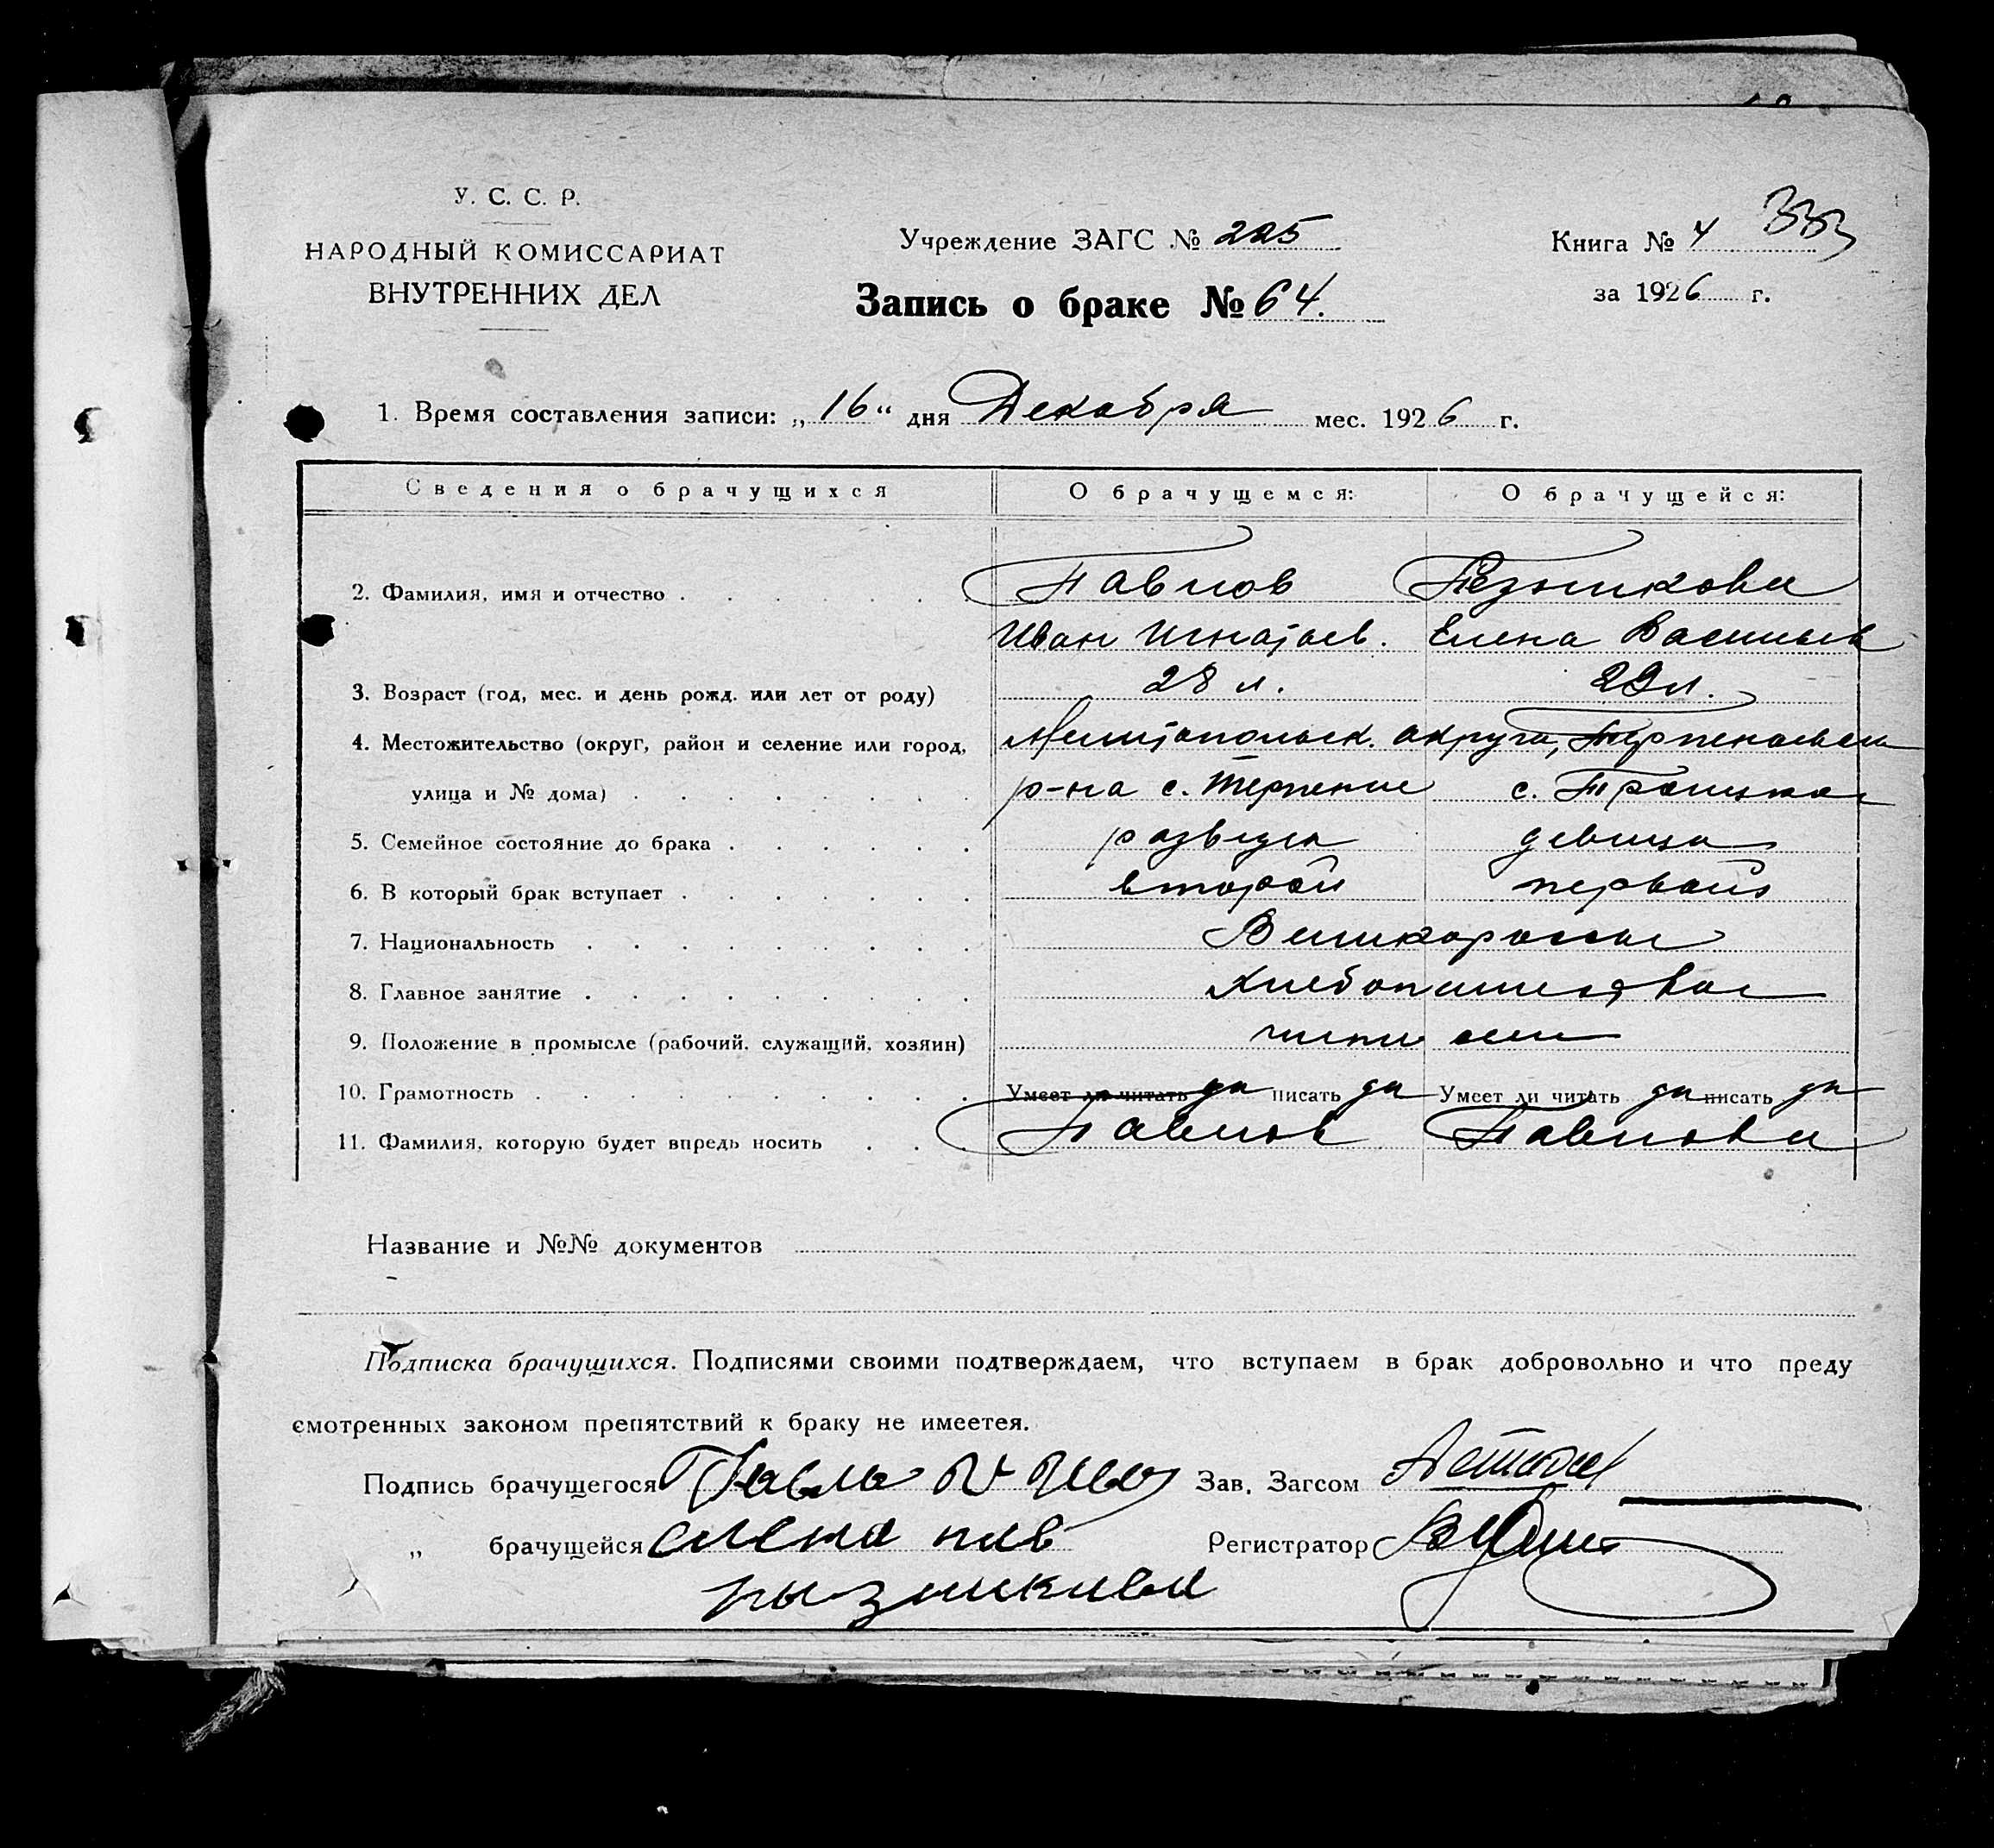 У. С. С. Р.
НАРОДНЫЙ КОМИССАРИАТ
ВНУТРЕННИХ ДЕЛ
Учреждение ЗАГС № 225
Книга № 4 333
Запись о браке № 64.
за 1926 г.
1. Время составления записи: „16“ дня Декабря мес. 1926 г.
Сведения о брачущихся О брачущемся: О брачущейся:
2. Фамилия, имя и отчество Павлов Резникова
Иван Игнатьев. Елена Васильев
3. Возраст (год, мес. и день рожд. или лет от роду) 28 л. 22 л.
4. Местожительство (округ, район и селение или город, Мелитопольск. округа, Терпеньевск
улица и № дома) р-на с. Терпение с. Троицкое
5. Семейное состояние до брака разведен девица
6. В который брак вступает второй первый
7. Национальность Великороссы
8. Главное занятие хлебопашество
9. Положение в промысле (рабочий, служащий, хозяин) члены семьи
10. Грамотность Умеет ли читать да писать да Умеет ли читать да писать да
11. Фамилия, которую будет впредь носить Павлов Павлова
Название и №№ документов
Подписка брачущихся. Подписями своими подтверждаем, что вступаем в брак добровольно и что преду
смотренных законом препятствий к браку не имеетея.
Подпись брачущегося Зав. Загсом
„ брачущейся елена Регистратор